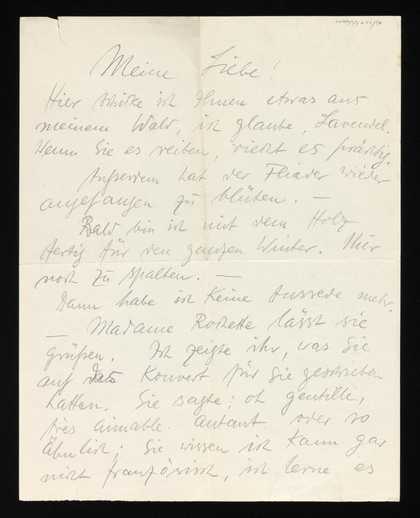 Meine Liebe!
Hier schicke ich Ihnen etwas aus
meinem Wald, ich glaube, Lavendel.
Wenn Sie es reiben, riecht es prächtig.
Ausserdem hat der Flieder wieder
angefangen zu blühen. —
Bald bin ich mit dem Holz
fertig für den ganzen Winter. Nur
noch zu spalten. —
Dann habe ich keine Ausrede mehr.
— Madame Rochette lässt Sie
grüßen. Ich zeigte ihr, was Sie
auf das Konvert für Sie geschrieben
hatten. Sie sagte: oh gentille,
très aimable. Autant oder so
ähnlich; Sie wissen ich kann gar
nicht französisch, ich lerne es